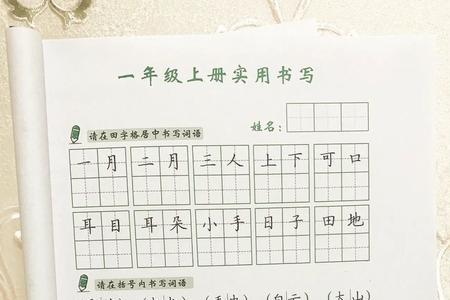 一年级上册实用书写
姓名：
请在田字格居中书写词语
一月 二月 三人 上下 可口
耳目 耳朵 小手 日子 田地
请在括号内书写词语
（白云）（大山）